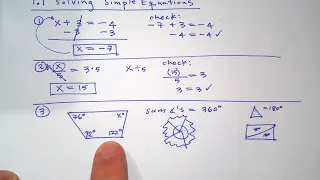 1.1 Solving Simple Equations
① x + 3 = -4
-3 -3
x = -7
check:
-7 + 3 = -4
-4 = -4 ✓
② x/5 = 3·5
x = 15
x ÷ 5
check:
(15)/5 = 3
3 = 3 ✓
③ 76° x°
122°
sum ∠'s = 360°
△ = 180°